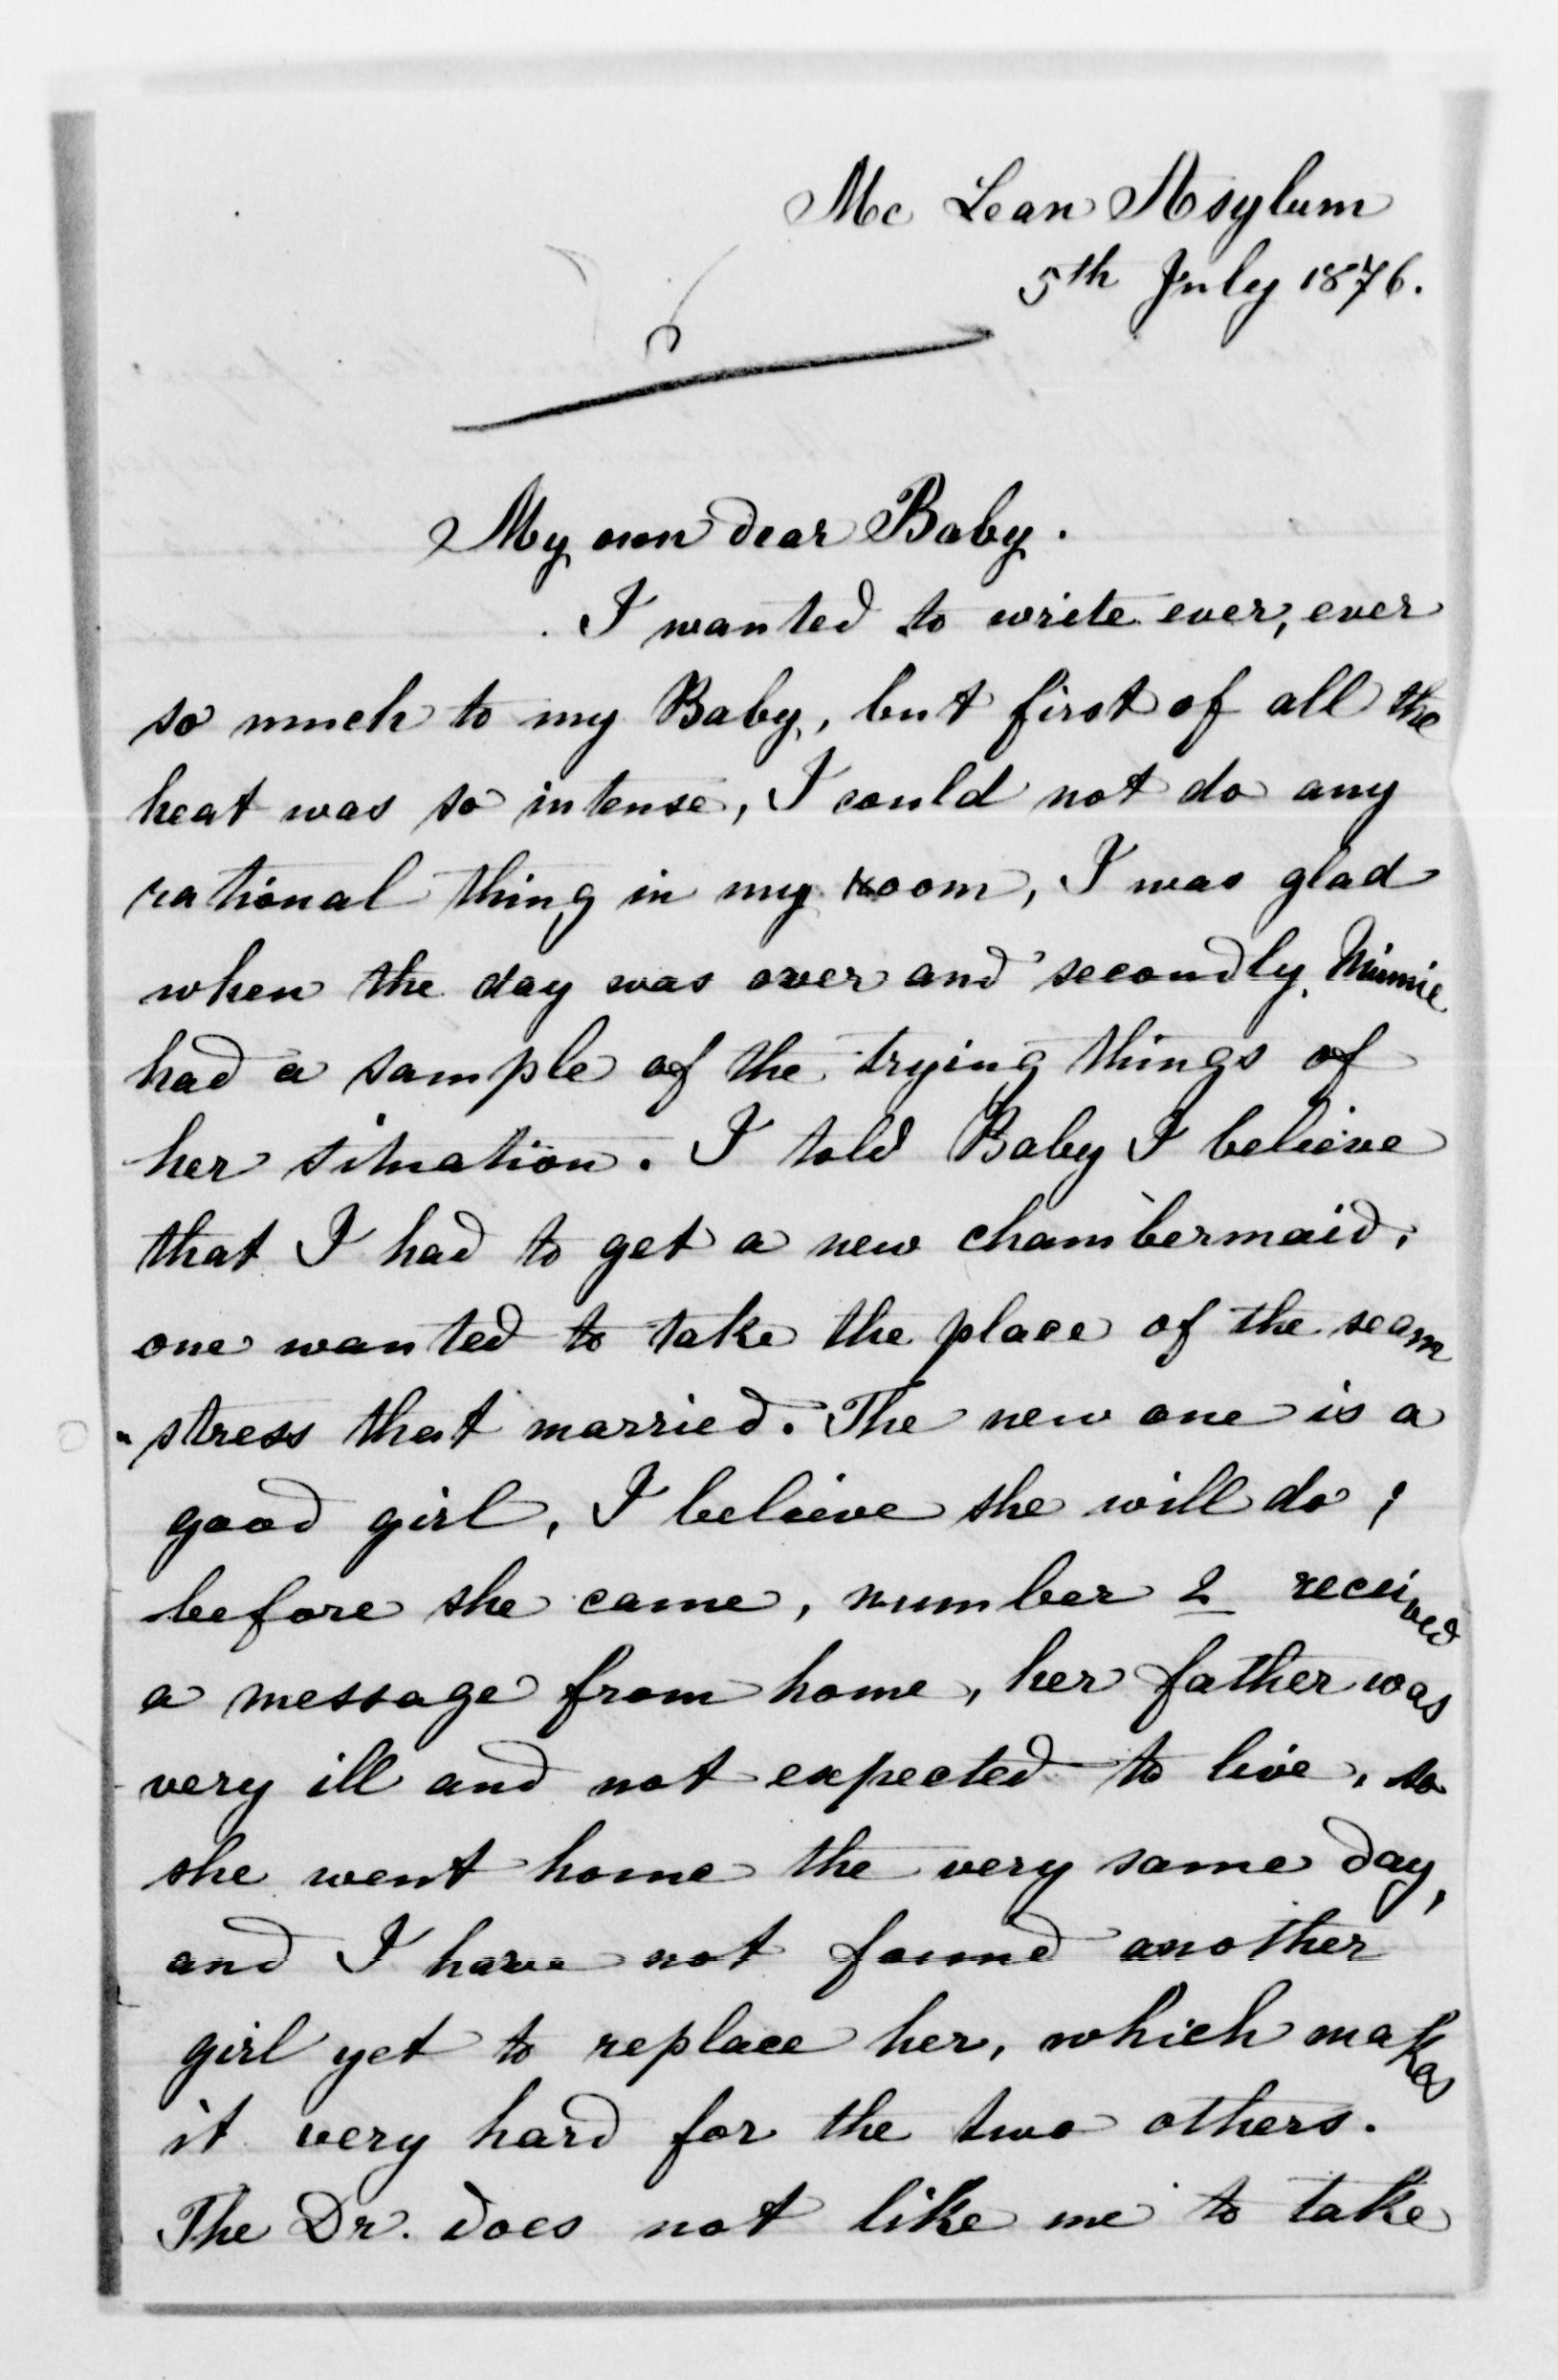 Mc Lean Asylum
5th July 1876.
My own dear Baby.
I wanted to write ever, ever
so much to my Baby, but first of all the
heat was so intense, I could not do any
rational thing in my room, I was glad
when the day was over and secondly, Minnie
had a sample of the trying things of
her situation. I told Baby I believe
that I had to get a new chambermaid,
one wanted to take the place of the seam
"stress that married. The new one is a
good girl, I believe she will do;
before she came, number 2 received
a message from home, her father was
very ill and not expected to live, so
she went home the very same day,
and I have not found another
girl yet to replace her, which makes
it very hard for the two others.
The Dr. does not like me to take